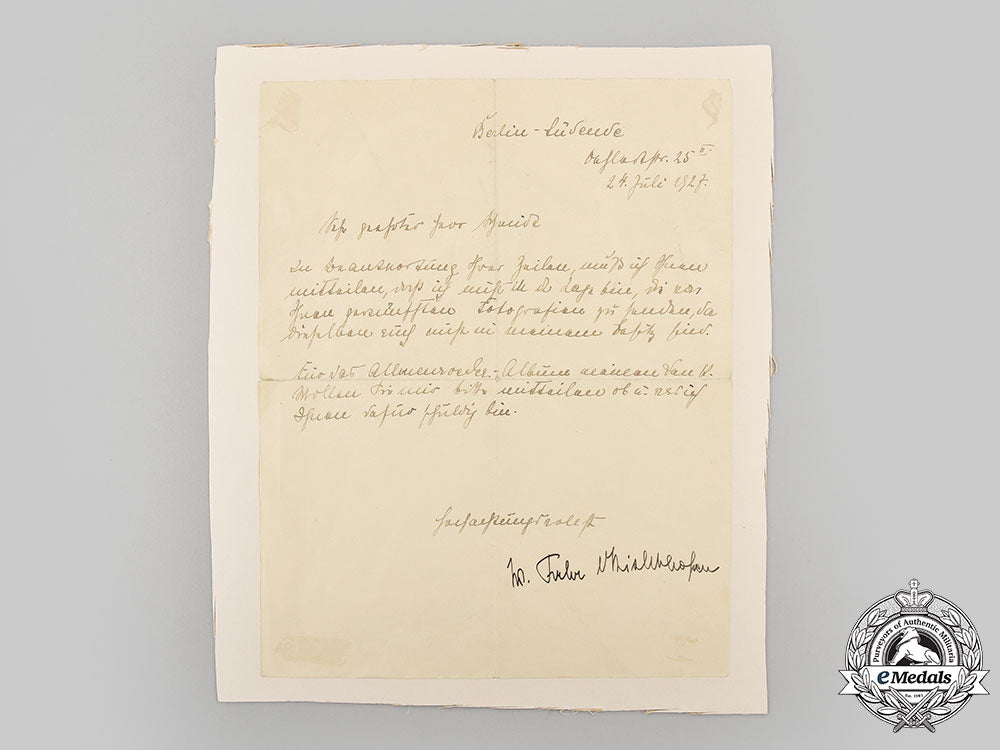 Berlin-Südende
Oehlertstr. 25 II.
24. Juli 1927.
Sehr geehrter Herr Schmidt
In Beantwortung Ihrer Zeilen, muß ich Ihnen
mitteilen, daß ich nicht in der Lage bin, die von
Ihnen gewünschten Fotografien zu senden, da
dieselben auch nicht in meinem Besitz sind.
Für das Allmenroeder-Album meinen Dank.
Wollen Sie mir bitte mitteilen ob u. was ich
Ihnen dafür schuldig bin.
Hochachtungsvollst
W. Frhr v Richthofen
Purveyors of Authentic Militaria
eMedals